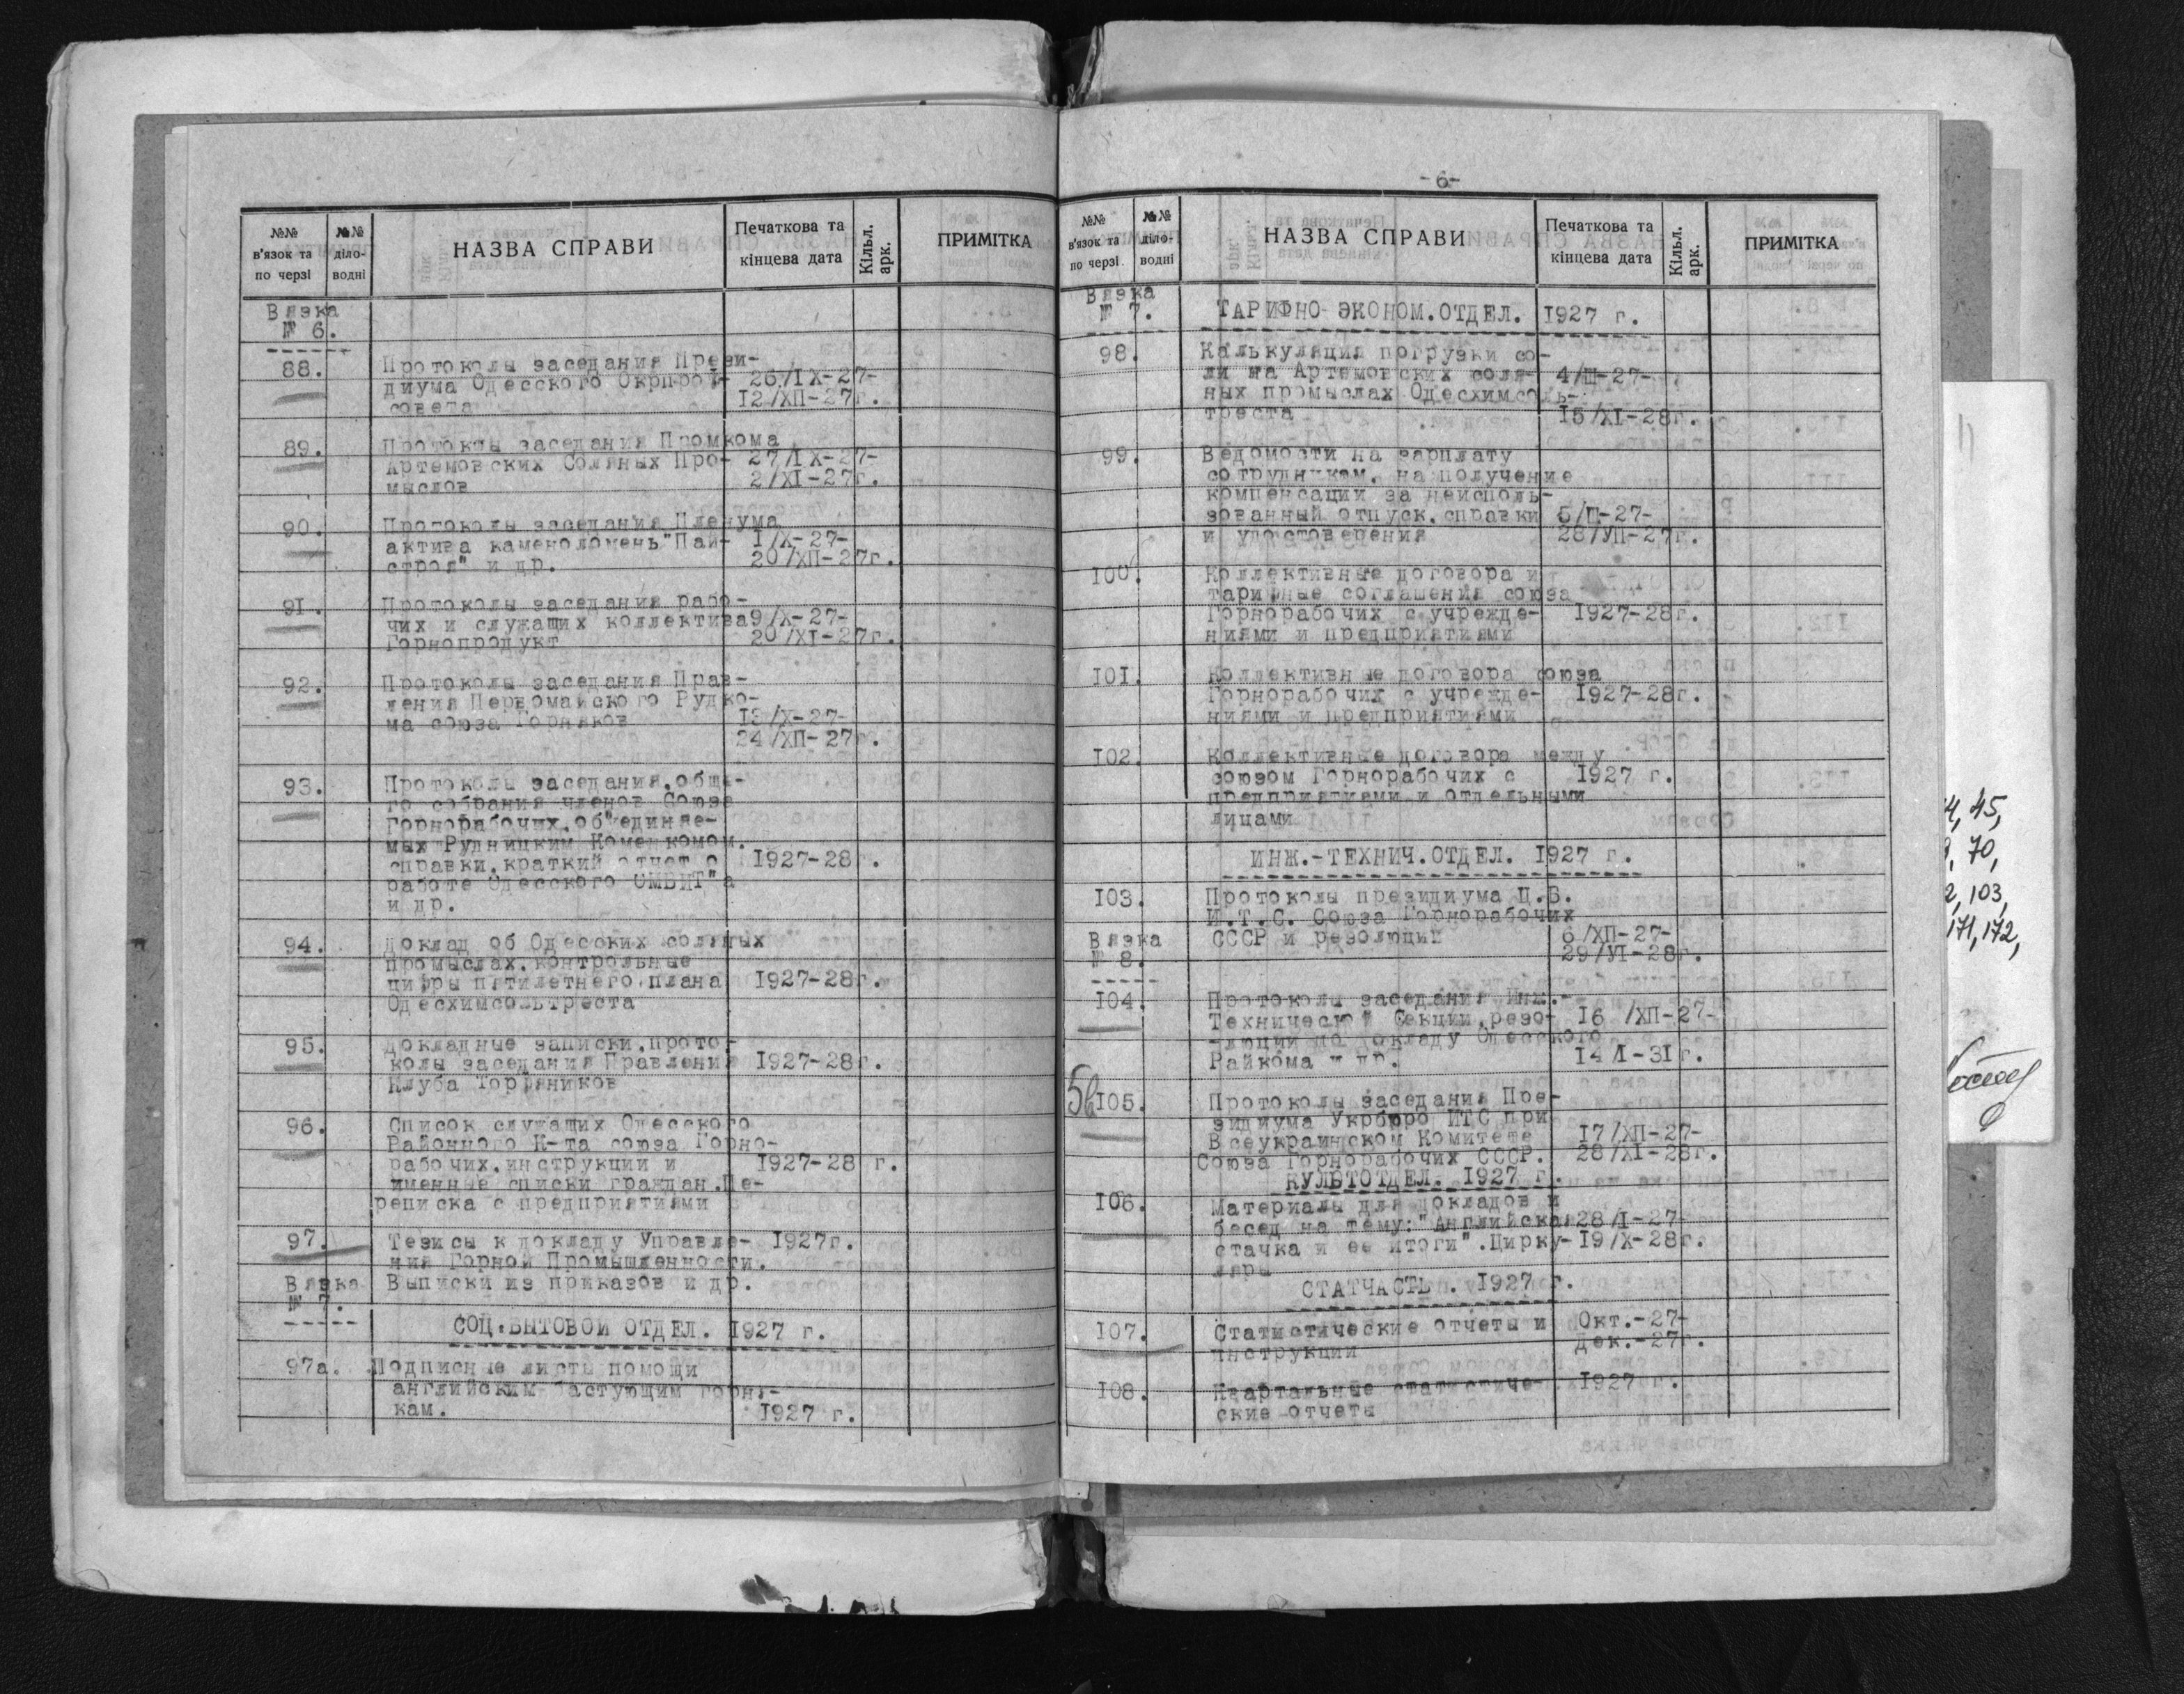 №№ в'язок та по черзі
№№ діло-водні
НАЗВА СПРАВИ
Печаткова та кінцева дата
Кільк. арк.
ПРИМІТКА
Вязка
№ 6.
88. Протоколы заседания Прези-
диума Одесского Окрпроф- 26/IX-27-
совета 12/ХП-27г.
89. Протоклы заседания Промкома
Артемовских Соляных Про- 27/IX-27-
мыслов 2/XI-27г.
90. Протоколы заседания Пленума
актива каменоломень "Пай- I/X-27-
строя" и др. 20/ХП-27г.
91. Протоколы заседания рабо-
чих и служащих коллектива 9/X-27-
Горнопродукт 20/XI-27г.
92. Протоколы заседания Прав-
ления Первомайского Рудко-
ма союза Горняков 13/X-27-
24/ХП-27г.
93. Протоколы заседания, обще-
го собрания членов Союза
Горнорабочих, об"единяе-
мых Рудницким Комешкомом.
справки, краткий отчет о 1927-28г.
работе Одесского ОМБИТ"а
и др.
94. Доклад об Одесских соляных
промыслах, контрольные
цифры пятилетнего плана 1927-28г.
Одесхимсольтреста
95. Докладные записки, прото-
колы заседания Правления 1927-28г.
Клуба Торфяников
96. Список служащих Одесского
Районного К-та союза Горно-
рабочих, инструкции и 1927-28 г.
именные списки граждан. Пе-
реписка с предприятиями
97. Тезисы к докладу Управле- 1927г.
ния Горной Промышленности.
Вязка Выписки из приказов и др.
№ 7.
СОЦ.БЫТОВОЙ ОТДЕЛ. 1927 г.
97а. Подписные листы помощи
английским бастующим горня-
кам. 1927 г.
-6-
№№ в'язок та по черзі
№№ діло-водні
НАЗВА СПРАВИ
Печаткова та кінцева дата
Кільк. арк.
ПРИМІТКА
Вязка
№ 7. ТАРИФНО-ЭКОНОМ.ОТДЕЛ. 1927 г.
98. Калькуляция погрузки со-
ли на Артемовских соля- 4/Ш-27-
ных промыслах Одесхимсоль-
треста 15/XI-28г.
99. Ведомости на зарплату
сотрудникам, на получение
компенсации за неисполь-
зованный отпуск, справки 5/Ш-27-
и удостоверения 28/УП-27г.
100. Коллективные договора и
тарифные соглашения союза
Горнорабочих с учрежде- 1927-28г.
ниями и предприятиями
101. Коллективные договора союза
Горнорабочих с учрежде- 1927-28г.
ниями и предприятиями
102. Коллективные договора между
союзом Горнорабочих с 1927 г.
предприятиями и отдельными
лицами
ИНЖ.-ТЕХНИЧ.ОТДЕЛ. 1927 г.
103. Протоколы президиума Ц.Б.
И.Т.С. Союза Горнорабочих
Вязка СССР и резолюции 6/ХП-27-
№ 8. 29/УІ-28г.
104. Протоколы заседания Инж.-
Технической Секции, резо- 16 /ХП-27-
люции по докладу Одесского
Райкома и др. 14/I-31г.
105. Протоколы заседания Пре-
зидиума Укрбюро ИТС при
Всеукраинском Комитете 17/ХП-27-
Союза Горнорабочих СССР. 28/XI-28г.
КУЛЬТОТДЕЛ. 1927 г.
106. Материалы для докладов и
бесед на тему: "Английская 28/I-27-
стачка и ее итоги". Цирку- 19/X-28г.
ляры
СТАТЧАСТЬ. 1927 г.
107. Статистические отчеты и Окт.-27-
инструкции Дек.-27г.
108. Квартальные статистиче- 1927 г.
ские отчеты
45,
70,
103,
171, 172,